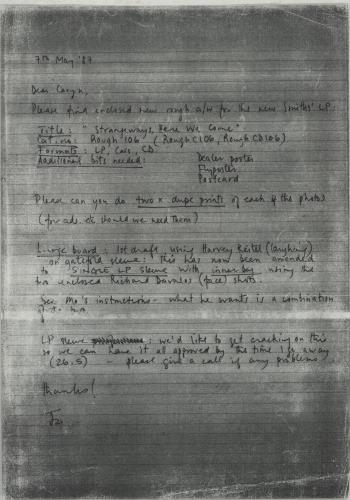 7th May '87
Dear Caryn,
Please find enclosed new rough a/w for the new Smiths' LP:
Title: "Strangeways, Here We Come"
Cat. nos: Rough 106 (Rough C106, Rough CD106)
Formats: LP, Cass, CD.
Additional bits needed: Dealer poster
Flyposter
Postcard
Please can you do two x dupe prints of each of the photos
(for ads etc should we need them)
Large board: 1st draft, using Harvey Keitel (laughing)
on gatefold sleeve: this has now been amended
to SINGLE LP sleeve with inner bag using the
two enclosed Richard Davalos (face) shots.
See Mo's instructions - what he wants is a combination
of the two
LP sleeve : we'd like to get cracking on this
so we can have it all approved by the time I go away
(26.5) - please give a call if any problems
thanks!
Jo